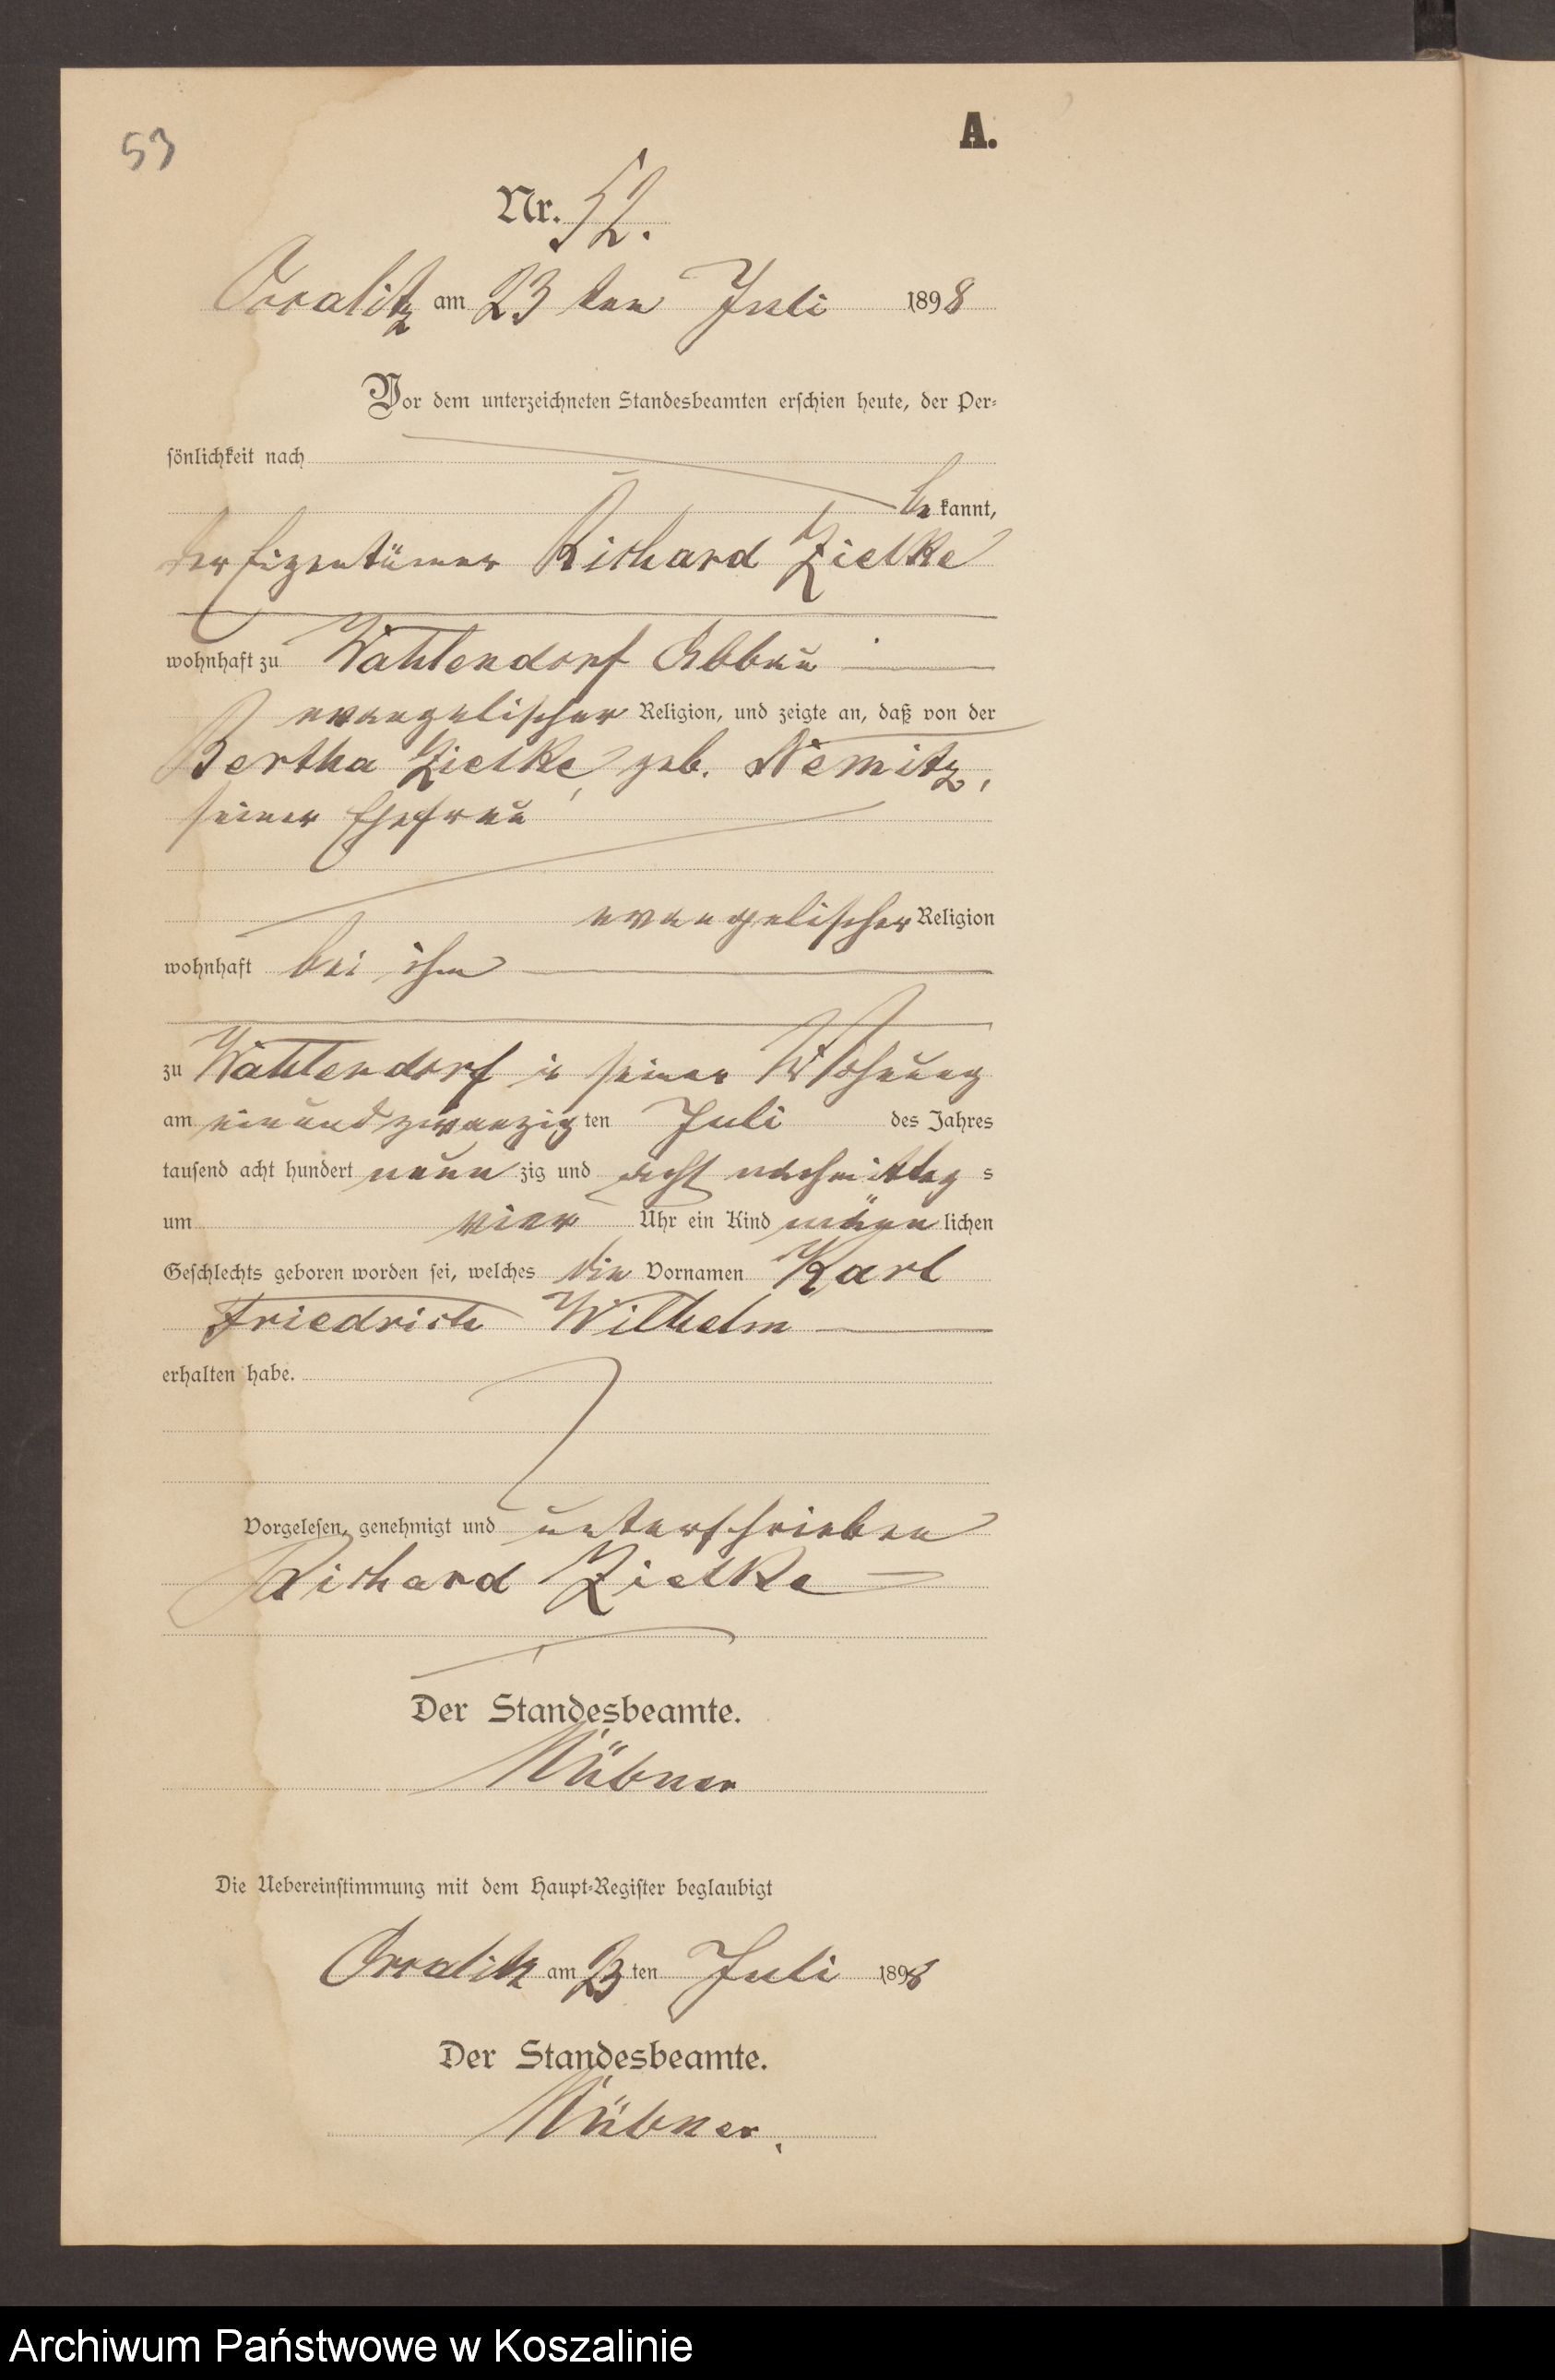 53
A.
Nr. 52.
Crralitz am 23 ten Juli 1898
Vor dem unterzeichneten Standesbeamten erschien heute, der Per-
sönlichkeit nach
be kannt,
der Eigentümer Richard Zielke
wohnhaft zu Wahlendorf Abbau
evangelischer Religion, und zeigte an, daß von der
Bertha Zielke, geb. Nemitz,
seiner Ehefrau
evangelischer Religion
wohnhaft bei ihm
zu Wahlendorf in seiner Wohnung
am einundzwanzig ten Juli des Jahres
tausend acht hundert neun zig und acht nachmittag s
um vier Uhr ein Kind männ lichen
Geschlechts geboren worden sei, welches die Vornamen Karl
Friedrich Wilhelm
erhalten habe.
Vorgelesen, genehmigt und unterschrieben
Richard Zielke
Der Standesbeamte.
Die Uebereinstimmung mit dem Haupt-Register beglaubigt
am 23 ten Juli 1898
Der Standesbeamte.
Archiwum Państwowe w Koszalinie